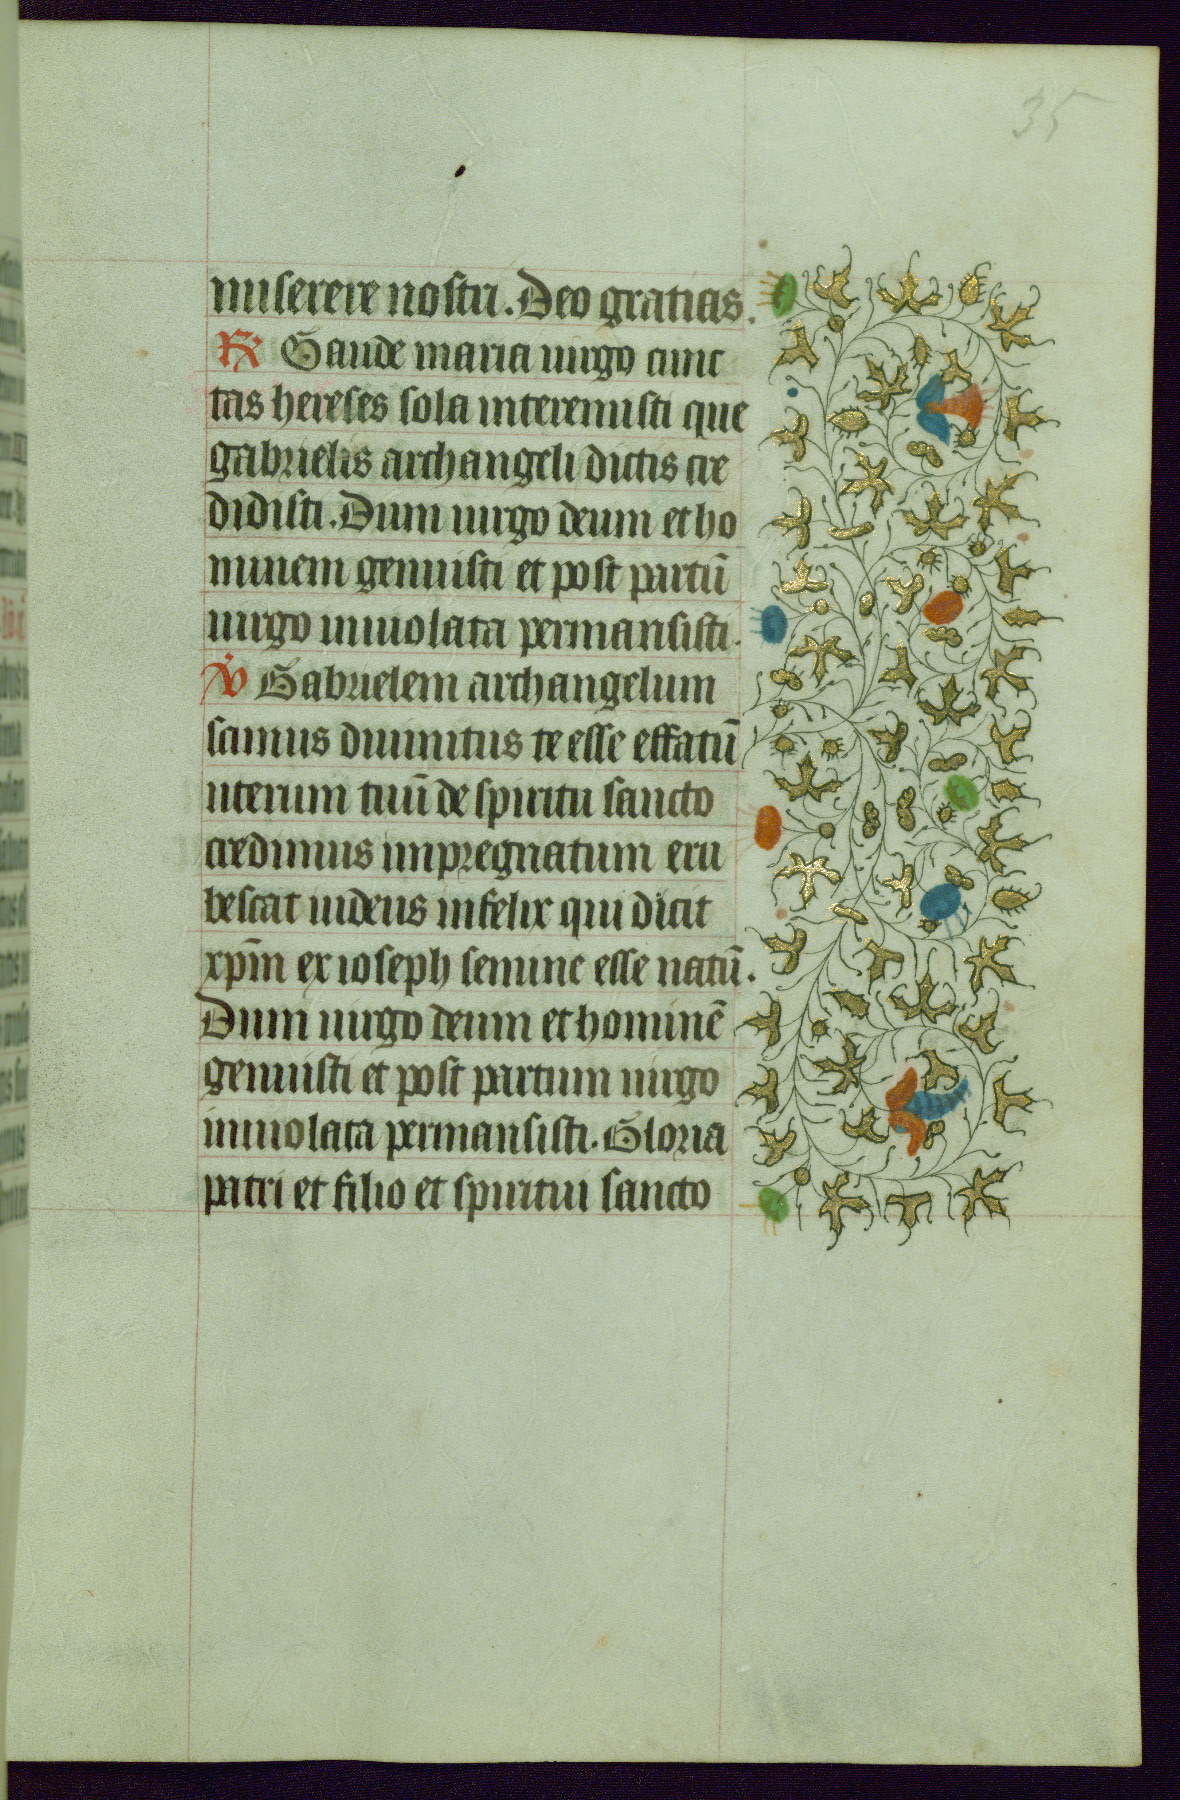 35
miserere nostri. Deo gratias.
R Gaude maria uirgo cunc
tas hereses sola interemisti que
gabrielis archangeli dictis cre
didisti. Dum uirgo deum et ho
minem genuisti et post partū
uirgo inuiolata permansisti.
V Gabrielem archangelum
scimus diuinitus te esse effatū
uterum tuū de spiritu sancto
credimus impregnatum eru
bescat iudeus infelix qui dicit
xp̄m ex ioseph semine esse natū.
Dum uirgo deum et hominē
genuisti et post partum uirgo
inuiolata permansisti. Gloria
patri et filio et spiritui sancto